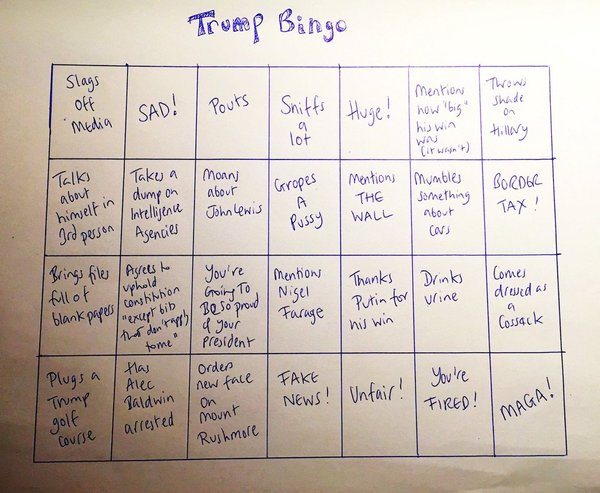 Trump Bingo
Slags
off
Media
SAD!
Pouts
Sniffs
a
lot
Huge!
Mentions
how "big"
his win
was
(it wasn't)
Throws
shade
on
Hillary
Talks
about
himself in
3rd person
Takes a
dump on
Intelligence
Agencies
Moans
about
John Lewis
Gropes
A
Pussy
Mentions
THE
WALL
Mumbles
something
about
Cars
BORDER
TAX!
Brings files
full of
blank papers
Agrees to
uphold
constitution
"except bits
that don't apply
to me"
You're
Going To
Be so proud
of your
President
Mentions
Nigel
Farage
Thanks
Putin for
his win
Drinks
urine
Comes
dressed as
a
Cossack
Plugs a
Trump
golf
course
Has
Alec
Baldwin
arrested
Orders
new face
on
Mount
Rushmore
FAKE
NEWS!
Unfair!
You're
FIRED!
MAGA!